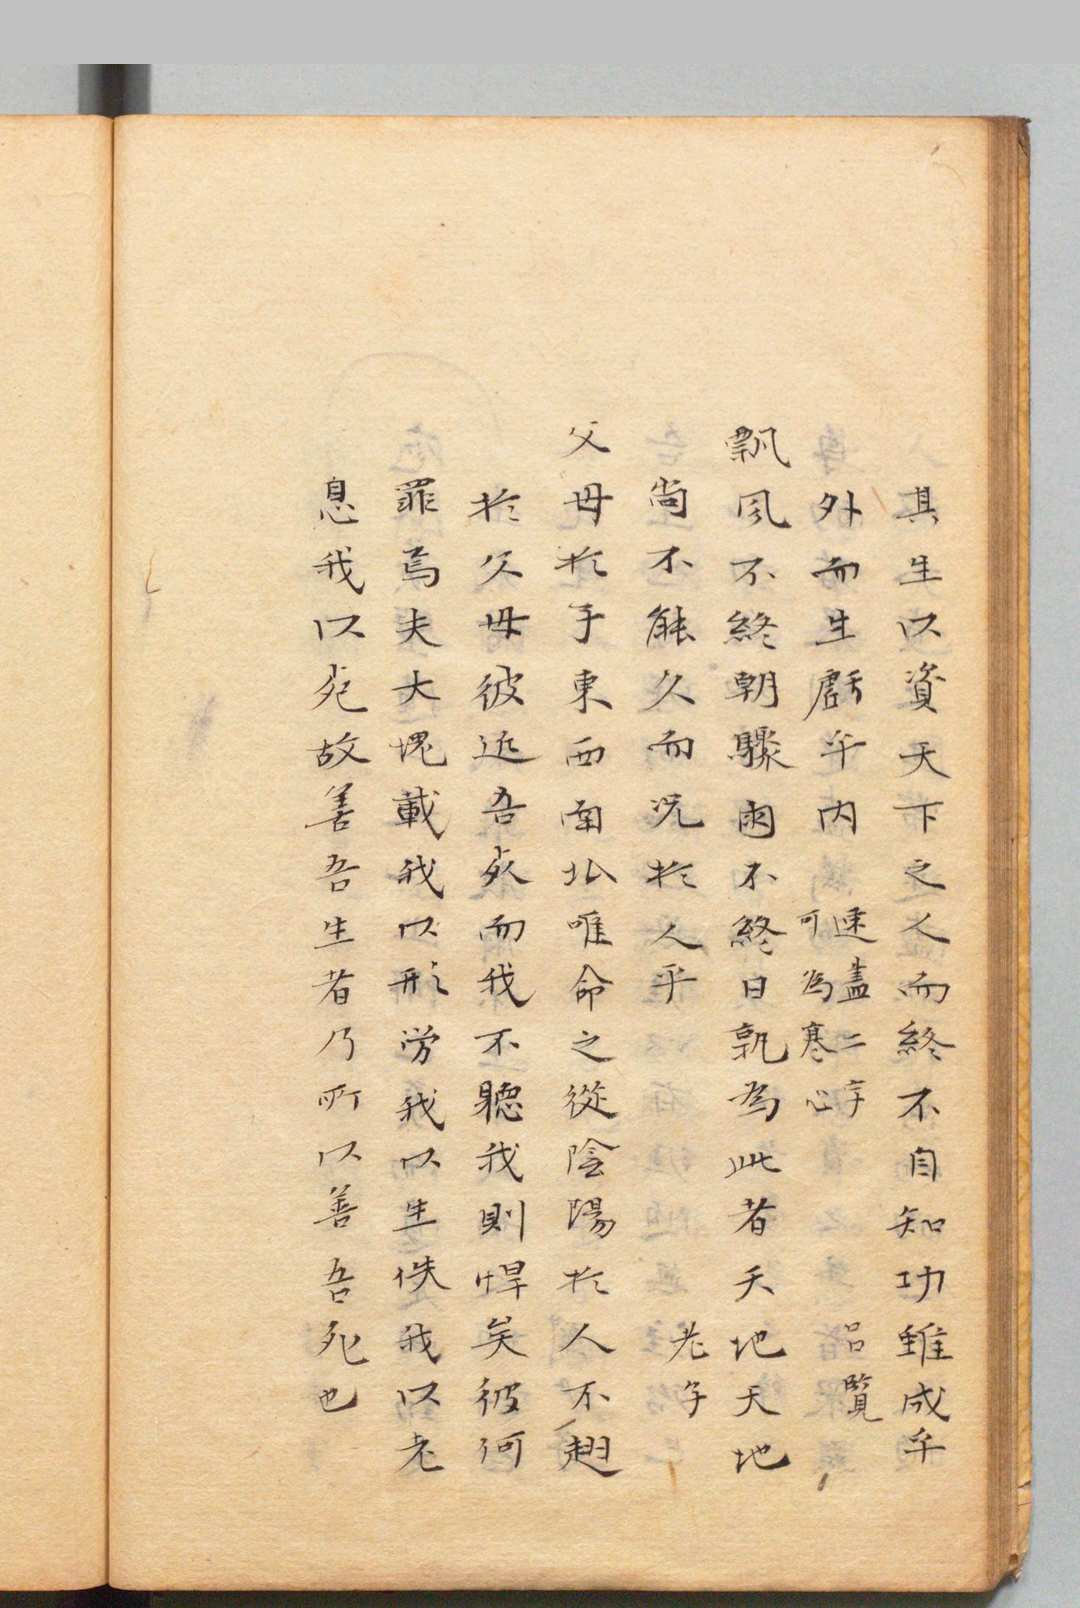 其生以資天下之人而終不自知功雖成乎
外而生虧乎内 速盡二字可為寒心 呂覽
飄風不終朝驟雨不終日孰為此者天地天地
尚不能久而况於人乎 老子
父母於子東西南北唯命之從陰陽於人不翅
於父母彼近吾死而我不聽我則悍矣彼何
罪焉夫大塊載我以形労我以生佚我以老
息我以死故善吾生者乃所以善吾死也